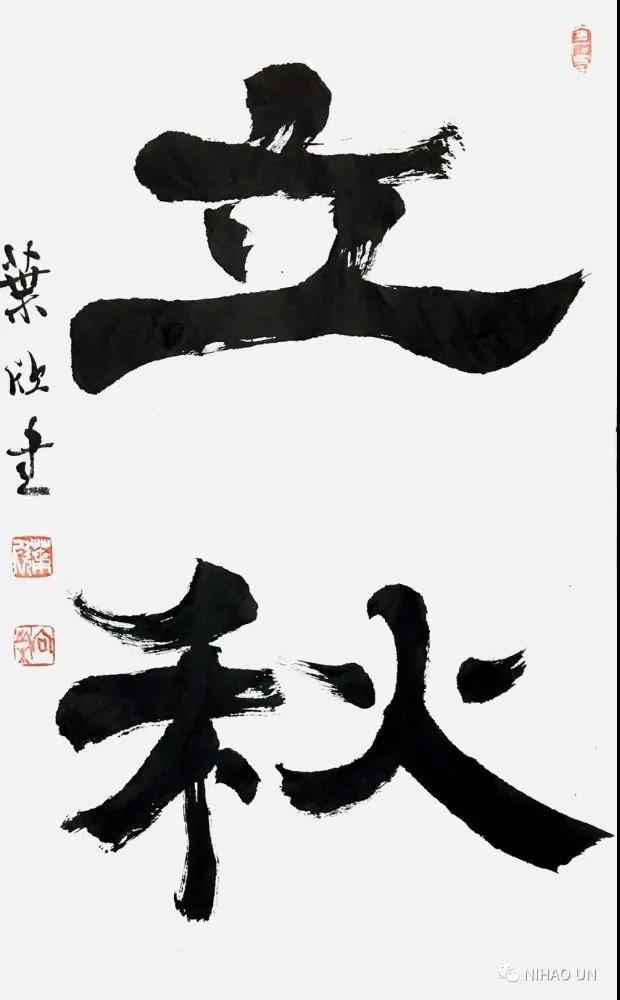 立秋
葉欣書
NIHAO UN